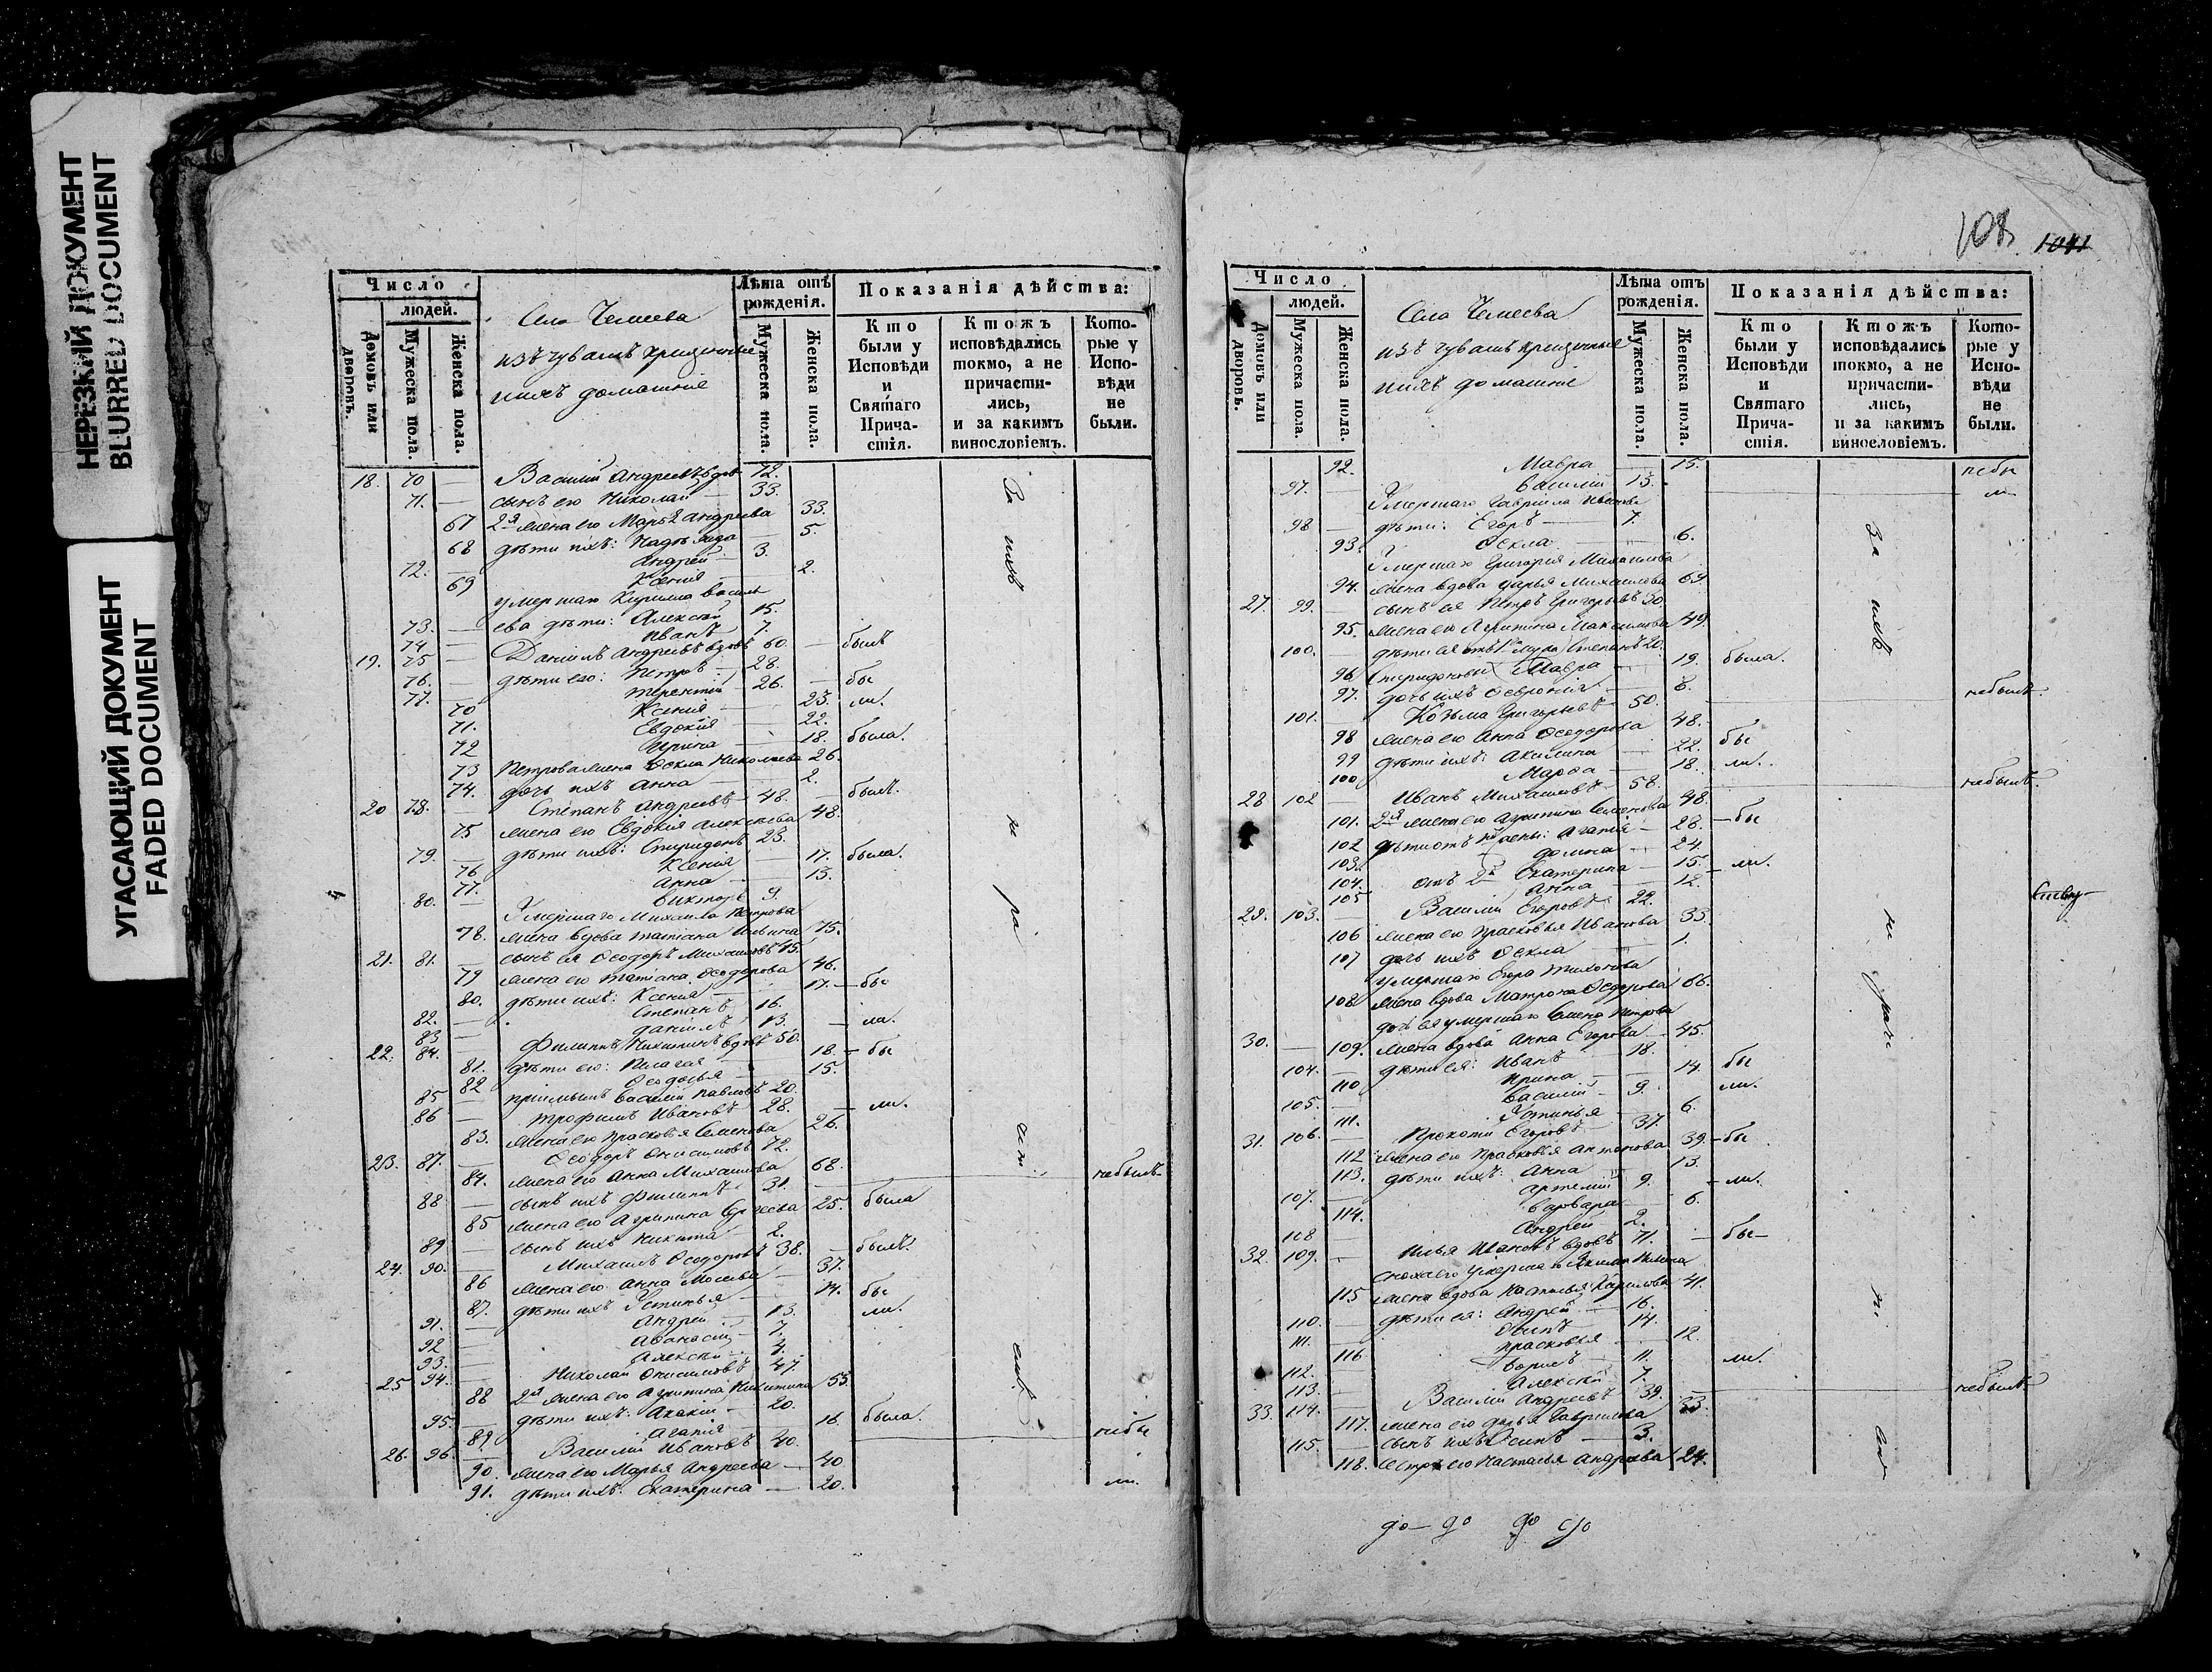 НЕРЕЗКИЙ ДОКУМЕНТ
BLURRED DOCUMENT
УГАСАЮЩИЙ ДОКУМЕНТ
FADED DOCUMENT
Число
людей.
Домовъ или дворовъ.
Мужеска пола.
Женска пола.
Села Чемеева
изъ чувашъ крещенные
ихъ домашніе
Лѣта отъ рожденія.
Мужеска пола.
Женска пола.
Показанія дѣйства:
Кто были у Исповѣди и Святаго Причастія.
Ктожъ исповѣдались токмо, а не причастились, и за какимъ винословіемъ.
Которые у Исповѣди не были.
18. 70 — Василій Андреевъ вдов 72.
71. — сынъ его Николай — 33.
67 2я жена его Марья Андреева 33.
68 дѣти ихъ: Надежда — 5.
72. — Андрей — 3.
69 Ксенія 2.
умершаго Кирилла Васил
73. — ева дѣти: Алексѣй 15.
74 — Иванъ 7.
19. 75 — Даніилъ Андреевъ вдовъ 60. — былъ
76. — дѣти его: Петръ — 28.
77. — Терентій — 26. — бы
70 Ксенія 23. ли.
71. Евдокія 22.
72 Ирина 18. была.
73 Петрова жена Ѳекла Николаева 26.
74. дочь ихъ Анна — 2.
20 78. — Степанъ Андреевъ — 48. — былъ.
75 жена его Евдокія Алексѣева 48.
79. — дѣти ихъ: Спиридонъ 23.
76 Ксенія — 17. была.
77. Анна 13.
80. — Викторъ 9.
Умершаго Михаила Петрова
78. жена вдова Татіана Ильина 75.
21. 81. — сынъ ея Ѳеодоръ Михаиловъ 45.
79 жена его Татіана Ѳеодорова 46.
80. дѣти ихъ: Ксенія 17. — бы
82. — Степанъ 16.
83 — Даніилъ 13. — ли.
22. 84. — Филиппъ Никитинъ вдовъ 50.
81. дѣти его: Пелагея 18. — бы
82 Ѳеодосья 15.
85 пріемышъ Василій Павловъ 20.
86 — Трофимъ Ивановъ 28. — ли.
83. жена его Прасковья Семенова 26.
23. 87. — Ѳеодоръ Онисимовъ 72.
84. жена его Анна Михаилова 68. небылъ
88 — сынъ ихъ Филиппъ — 31. —
85 жена его Агрипина Сергеева 25. была
89 — сынъ ихъ Никита 2.
24. 90. — Михаилъ Ѳеодоровъ 38. — былъ.
86 жена его Анна Мосеева — 37.
87. дѣти ихъ Устинья — 14. бы
91. — Андрей 13. ли.
92 — Аѳанасій 7.
93. — Алексѣй 4.
25 94. — Николай Онисимовъ 47.
88 2я жена его Агрипина Никитина 53.
95. — дѣти ихъ: Акакій — 20.
89 Агапія 16. была.
26. 96. — Василій Ивановъ 40. небы
90. жена его Марья Андреева — 40
91. дѣти ихъ: Екатерина — 20. ли.
За ихъ не ра
108. 1041
Число
людей.
Домовъ или дворовъ.
Мужеска пола.
Женска пола.
Села Чемеева
изъ чувашъ крещенные
ихъ домашніе
Лѣта отъ рожденія.
Мужеска пола.
Женска пола.
Показанія дѣйства:
Кто были у Исповѣди и Святаго Причастія.
Ктожъ исповѣдались токмо, а не причастились, и за какимъ винословіемъ.
Которые у Исповѣди не были.
92. Мавра 15. небы
97. — Василій 13. ли
Умершаго Гавріила Иванова
98 — дѣти: Егоръ — 7.
93. Ѳекла — 6.
Умершаго Григорія Михаилова
94. жена вдова Дарья Михаилова 69
27. 99. — сынъ ея Петръ Григорьевъ 50.
95. жена его Агрипина Максимова 49.
100. дѣти ея отъ 1го мужа Степанъ 20.
96. Спиридоновы Мавра — 19. была.
97. дочь ихъ Ѳевронія — 8.
101. — Козьма Григорьевъ — 50. небылъ.
98 жена его Анна Ѳеодорова 48.
99 дѣти ихъ: Акилина — 22. бы
100 Марѳа — 18. ли.
28 102 — Иванъ Михаиловъ — 58. небылъ.
101. 2я жена его Агрипина Семенова 48.
102 дѣти отъ 1й жены: Агапія — 28. — бы
103. Домна 24.
104. отъ 2й Екатерина — 15. — ли.
105 Анна 12.
29. 103. — Василій Егоровъ 22.
106 жена его Прасковья Иванова 33.
107 дочь ихъ Ѳекла — 1.
умершаго Егора Тихонова
108 жена вдова Матрона Ѳедорова 66.
дочь ея умершаго Семена Петрова
30. — 109. жена вдова Анна Егорова — 45.
104. — дѣти ея: Иванъ 18.
110 Ирина — 14. бы
105. — Василій — 9. ли.
111. Устинья 6.
31. 106. — Прокопій Егоровъ — 37.
112 жена его Прасковья Антонова 39. — бы
113. дѣти ихъ: Анна 13.
107. — Артемій 9. — ли.
114. Варвара 6.
108 Андрей 2.
32. 109. — Илья Ивановъ вдовъ 71. — бы —
115 жена вдова Настасья Кирилова 41.
110. — дѣти ея: Андрей — 16.
111. — Осипъ — 14.
116 Прасковья 12.
112. — Борисъ 11. ли.
113. — Алексѣй 7.
33. 114. — Василій Андреевъ 39. — небылъ
117. жена его Дарья Гаврилова 33.
115. — сынъ ихъ Осипъ — 3.
118. сестра его Настасья Андреева 24.
За ихъ не раче ні
до — до до до